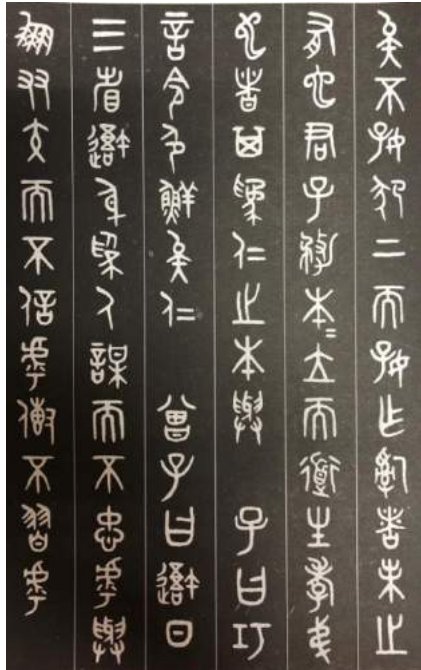 矣不好犯上而好作亂者未之
有也君子務本=立而道生孝弟
也者其爲仁之本與 子曰巧
言令色鮮矣仁 曾子曰吾日
三省吾身爲人謀而不忠乎與
朋友交而不信乎傳不習乎